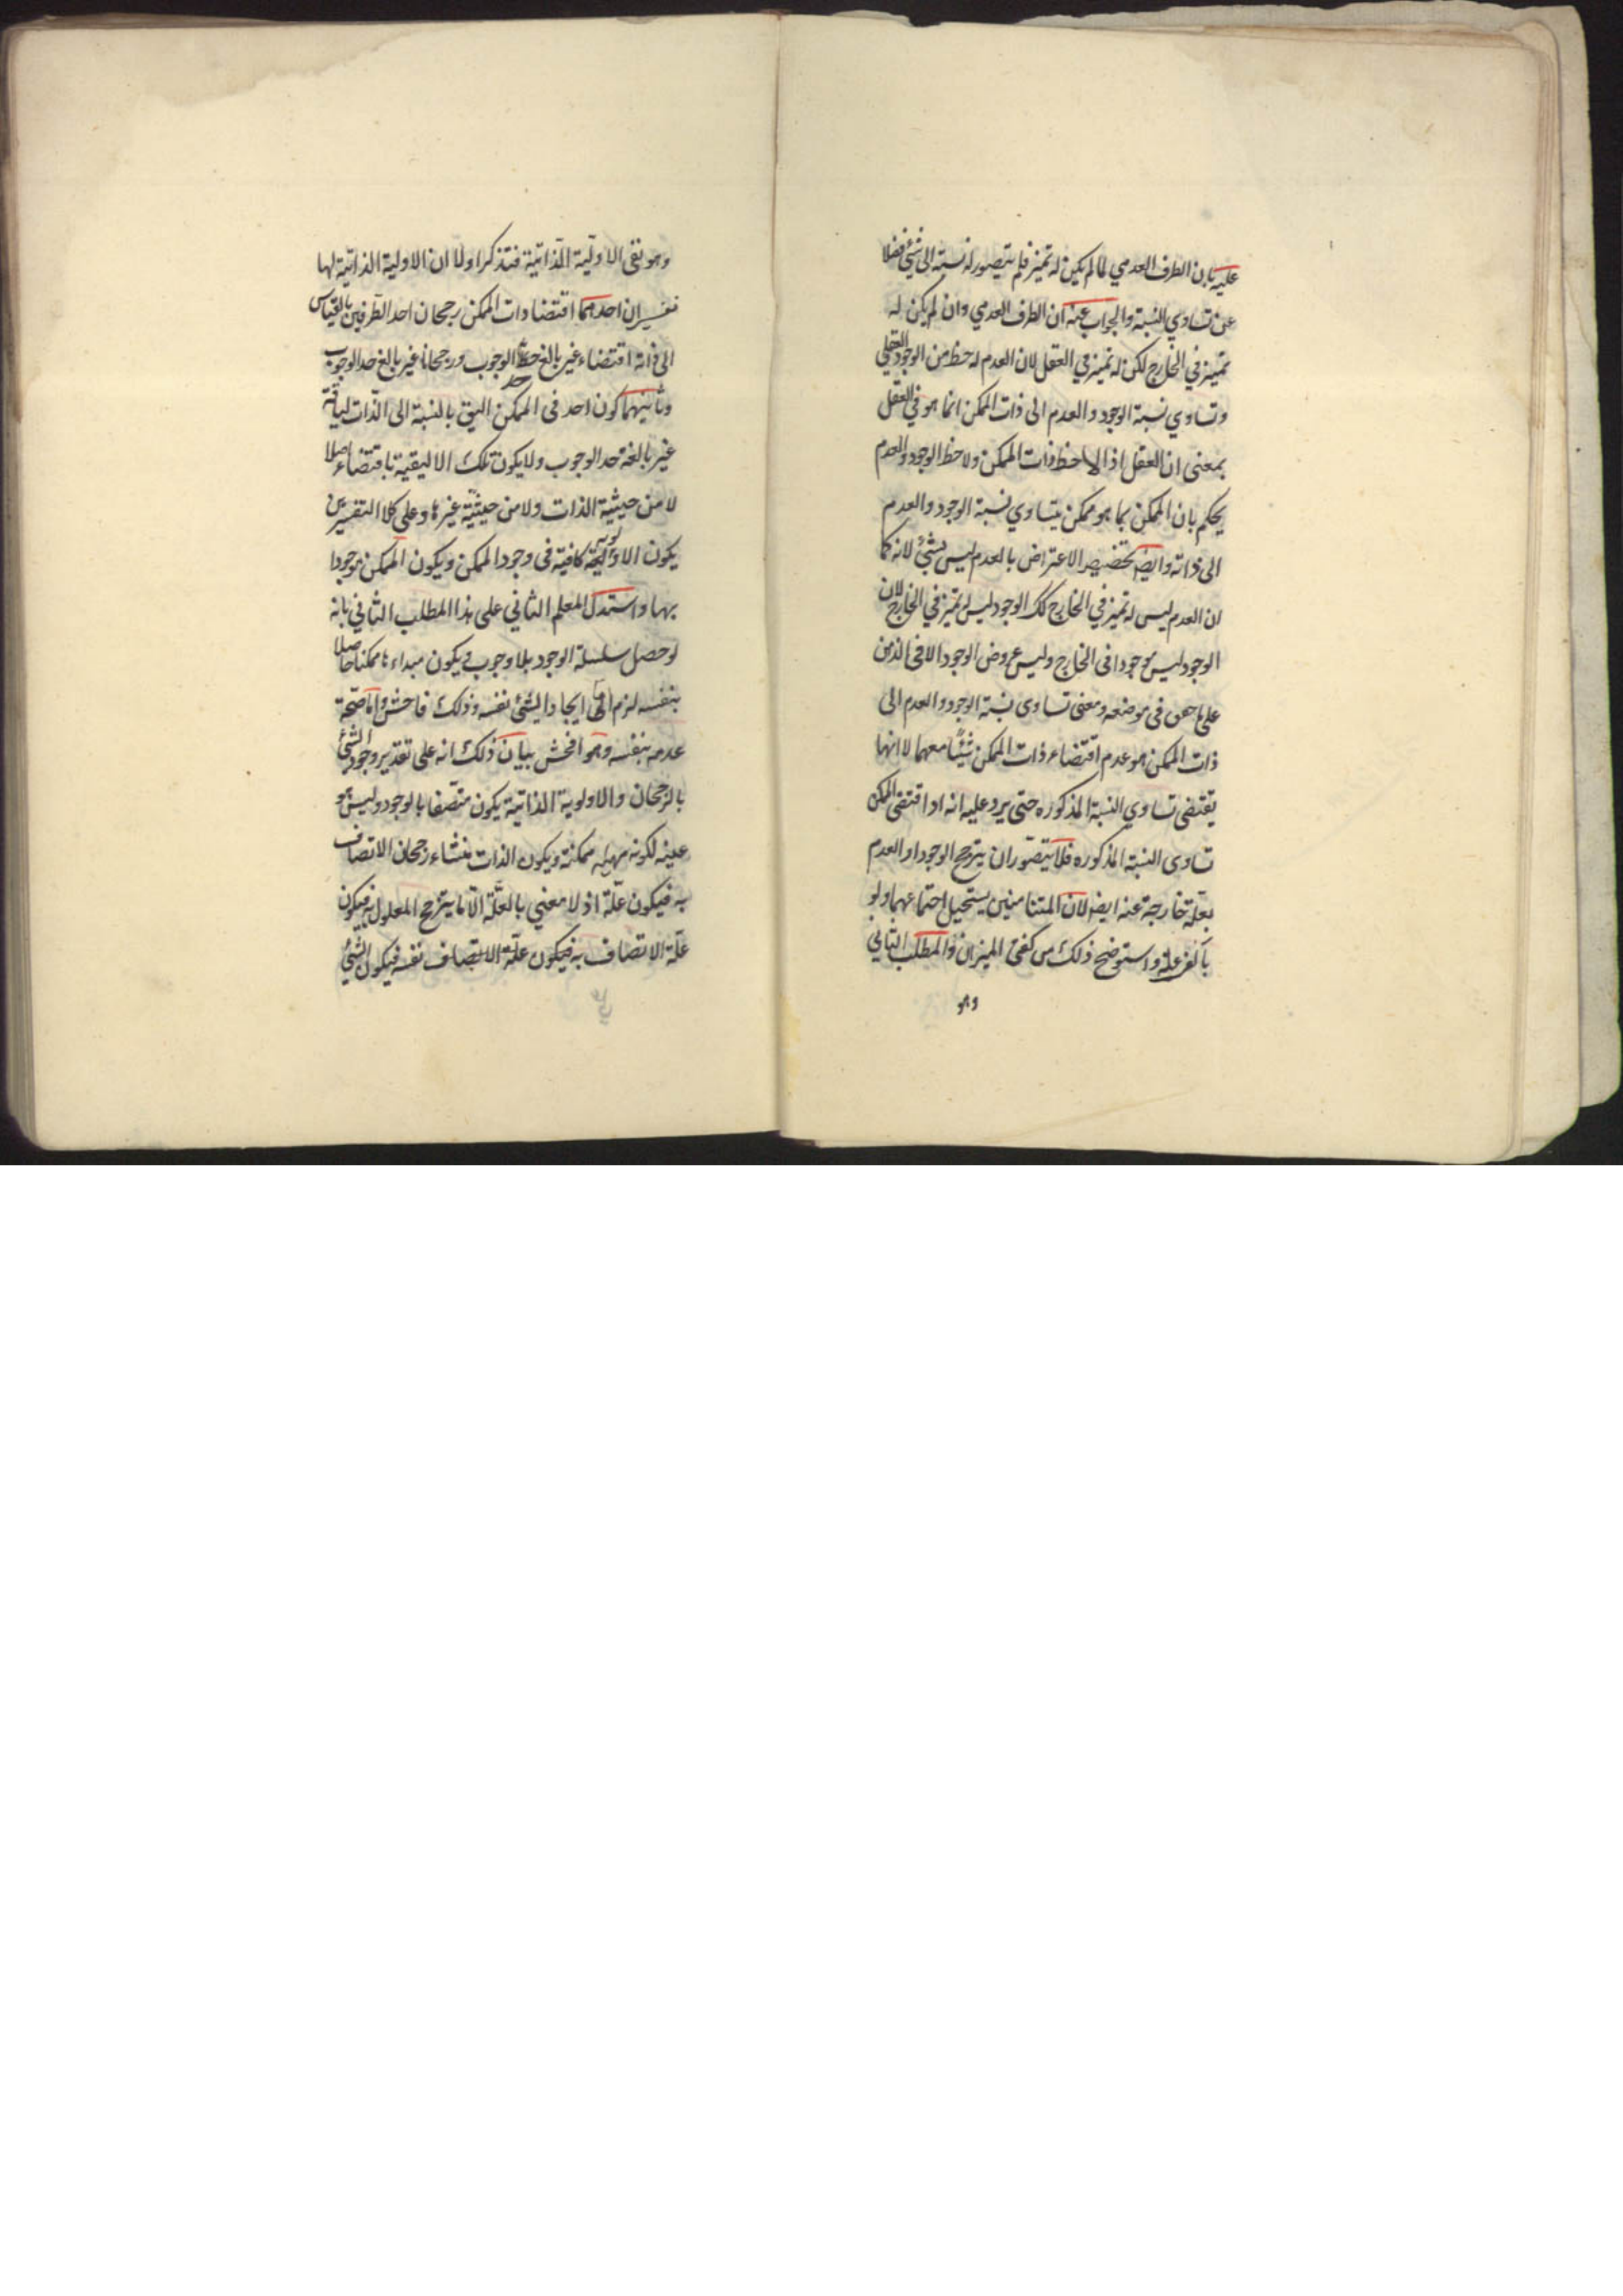 عليه بان الطرف العدمي لما لم يكن له تميز فلم يتصور له نسبة الى شئ فضلا
عن تساوي النسبة والجواب عنه ان الطرف العدمي وان لم يكن له
تميز في الخارج لكن له تميز في العقل لان العدم له حظ من الوجود العقلي
وتساوي نسبة الوجود والعدم الى ذات الممكن انما هو في العقل
بمعنى ان العقل اذا لاحظ ذات الممكن ولاحظ الوجود والعدم
يحكم بان الممكن بما هو ممكن يتساوي نسبة الوجود والعدم
الى ذاته وايضا تخصيص الاعتراض بالعدم ليس بشئ لانه كما
ان العدم ليس له تميز في الخارج كك الوجود ليس له تميز في الخارج لان
الوجود ليس موجودا في الخارج وليس عروض الوجود الا في الذهن
على ما حقق في موضعه ومعنى تساوى نسبة الوجود والعدم الى
ذات الممكن هو عدم اقتضاء ذات الممكن شيئا معهما لا انها
يقتضى تساوي النسبة المذكوره حتى يرد عليه انه اذا اقتضى الممكن
تساوى النسبة المذكوره فلا يتصور ان يترجح الوجود او العدم
بعلة خارجة عنه ايضا لان المتنافيين يستحيل اجتماعهما ولو
بالف علة واستوضح ذلك من كفى الميزان والمطلب الثاني
وهو
وهو نفى الاولية الذاتية فتذكر اولا ان الاولية الذاتية لها
تفسيران احدهما اقتضا ذات الممكن رجحان احد الطرفين بالقياس
الى ذاته اقتضاء غير بالغ حد الوجوب ورجحانا غير بالغ حد الوجوب
وثانيهما كون احد في الممكن اليق بالنسبة الى الذات لياقة
غير بالغة حد الوجوب ولا يكون تلك الاليقية باقتضاء اصلا
لا من حيثية الذات ولا من حيثية غيرها وعلى كلا التفسيرين
يكون الاولوية كافية في وجود الممكن ويكون الممكن موجودا
بها واستدل المعلم الثاني على هذا المطلب الثاني بانه
لو حصل سلسلة الوجود بلا وجوب ويكون مبداءها ممكنا حاصلا
بنفسه لزم اما ايجاد الشئ نفسه وذلك فاحش واما صحة
عدمه بنفسه وهو افحش بيان ذلك انه على تقدير وجود الشئ
بالرجحان والاولوية الذاتية يكون متصفا بالوجود وليس هو
عينه لكونه مهية ممكنة ويكون الذات منشاء رجحان الاتصاف
به فيكون علة اذ لا معني بالعلة الا ما يترجح المعلول به فيكون
علة الاتصاف به فيكون علة الاتصاف نفسه فيكون الشئ